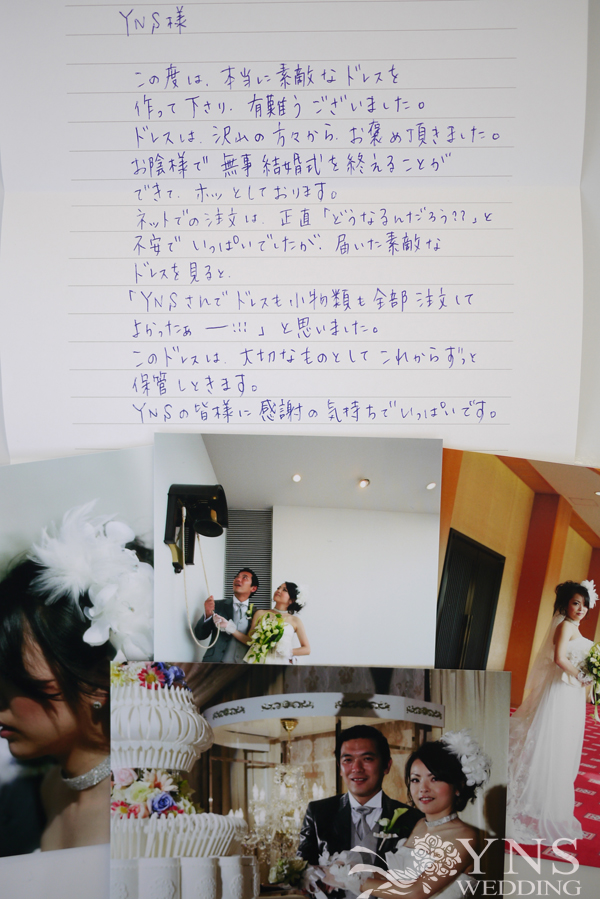 YNS様
この度は、本当に素敵なドレスを
作って下さり、有難うございました。
ドレスは、沢山の方々から、お褒め頂きました。
お陰様で 無事 結婚式を終えることが
できて、ホッとしております。
ネットでの注文は、正直「どうなるんだろう??」と
不安で いっぱいでしたが、届いた素敵な
ドレスを見ると、
「YNSさんで ドレスも小物類も全部 注文して
よかったぁ ー!!! 」と思いました。
このドレスは、大切なものとして これからずっと
保管しときます。
YNSの皆様に 感謝の気持ちで いっぱいです。
YNS
WEDDING